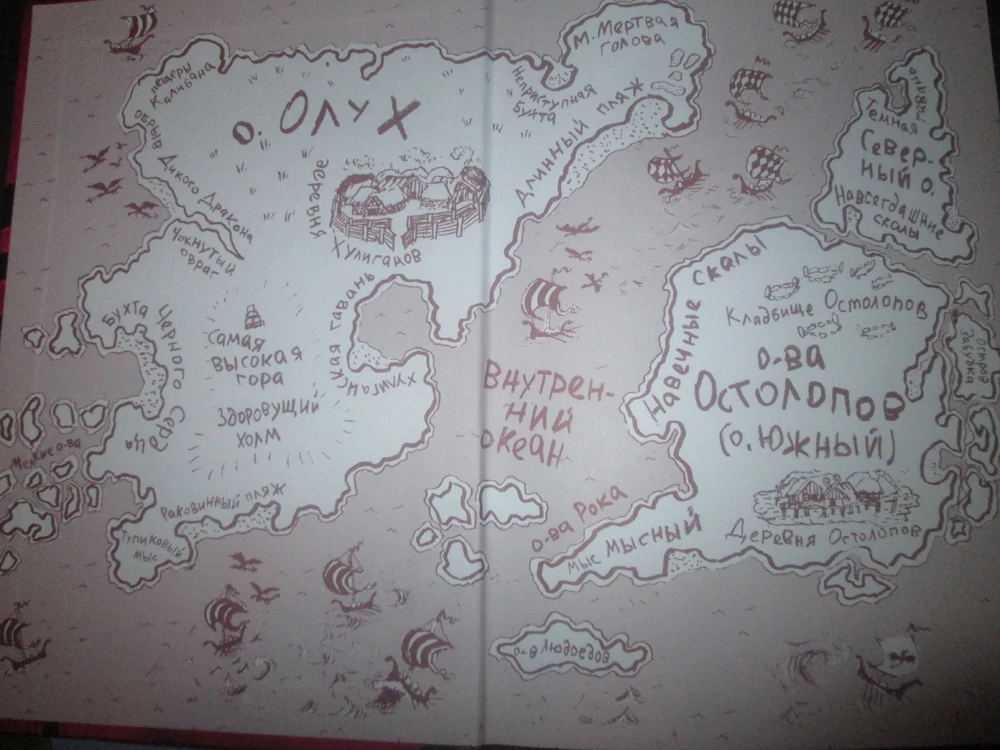 м. Мертвая
голова
пещеры
Калибана
Неприступная
Бухта
о. Олух
обрыв Дикого Дракона
Длинный пляж
Темная
Север-
ный о.
Навсегдашние
скалы
деревня
Хулиганов
Чокнутый
овраг
Навечные скалы
Кладбище Остолопов
Бухта Черного Сердца
Самая
высокая
гора
Хулиганская гавань
Внутрен-
ний
океан
о-ва
Остолопов
(о. Южный)
Здоровущий
холм
Мелкие о-ва
Раковинный пляж
Тупиковый
мыс
о-ва Рока
мыс Мысный
Деревня Остолопов
о-в людоедов